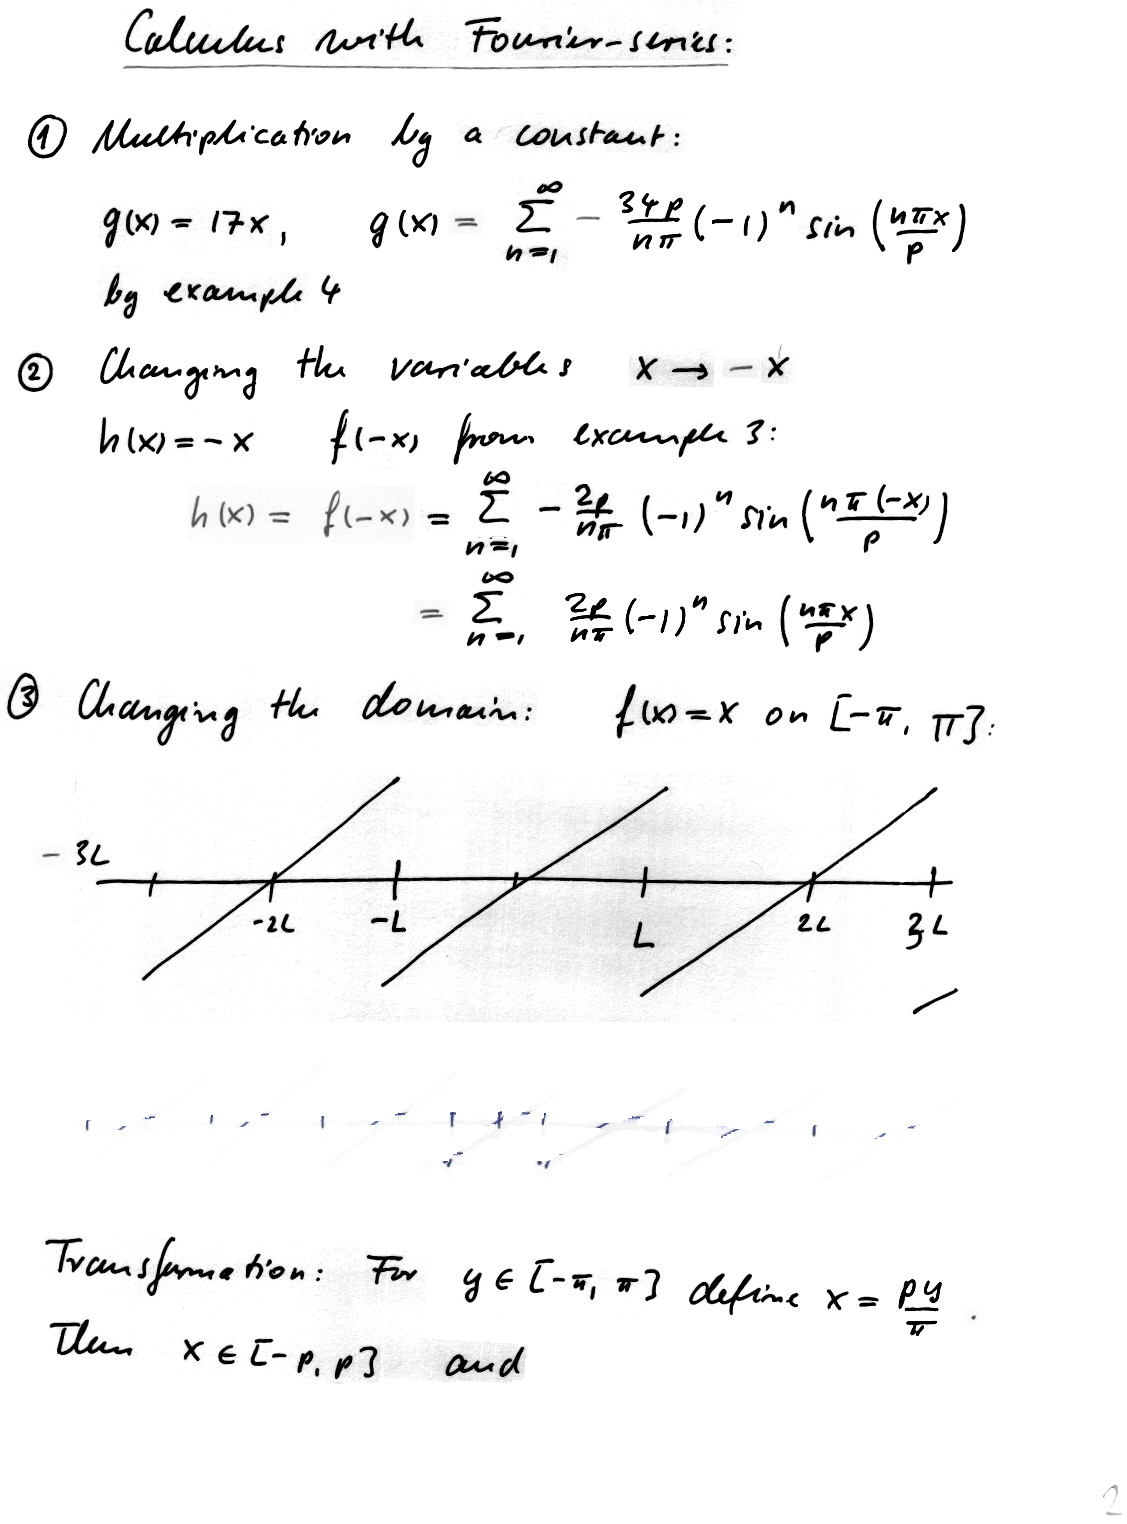 Calculus with Fourier-series:
① Multiplication by a constant:
g(x) = 17x, g(x) = ∑_{n=1}^{∞} - \frac{34p}{nπ} (-1)^n sin (\frac{nπx}{p})
by example 4
② Changing the variables x → - x
h(x) = - x f(-x) from example 3:
h(x) = f(-x) = ∑_{n=1}^{∞} - \frac{2p}{nπ} (-1)^n sin (\frac{nπ(-x)}{p})
= ∑_{n=1}^{∞} \frac{2p}{nπ} (-1)^n sin (\frac{nπx}{p})
③ Changing the domain: f(x) = x on [-π, π]:
- 3L
-2L -L L 2L 3L
Transformation: For y ∈ [-π, π] define x = \frac{py}{π}.
Then x ∈ [-p, p] and
2